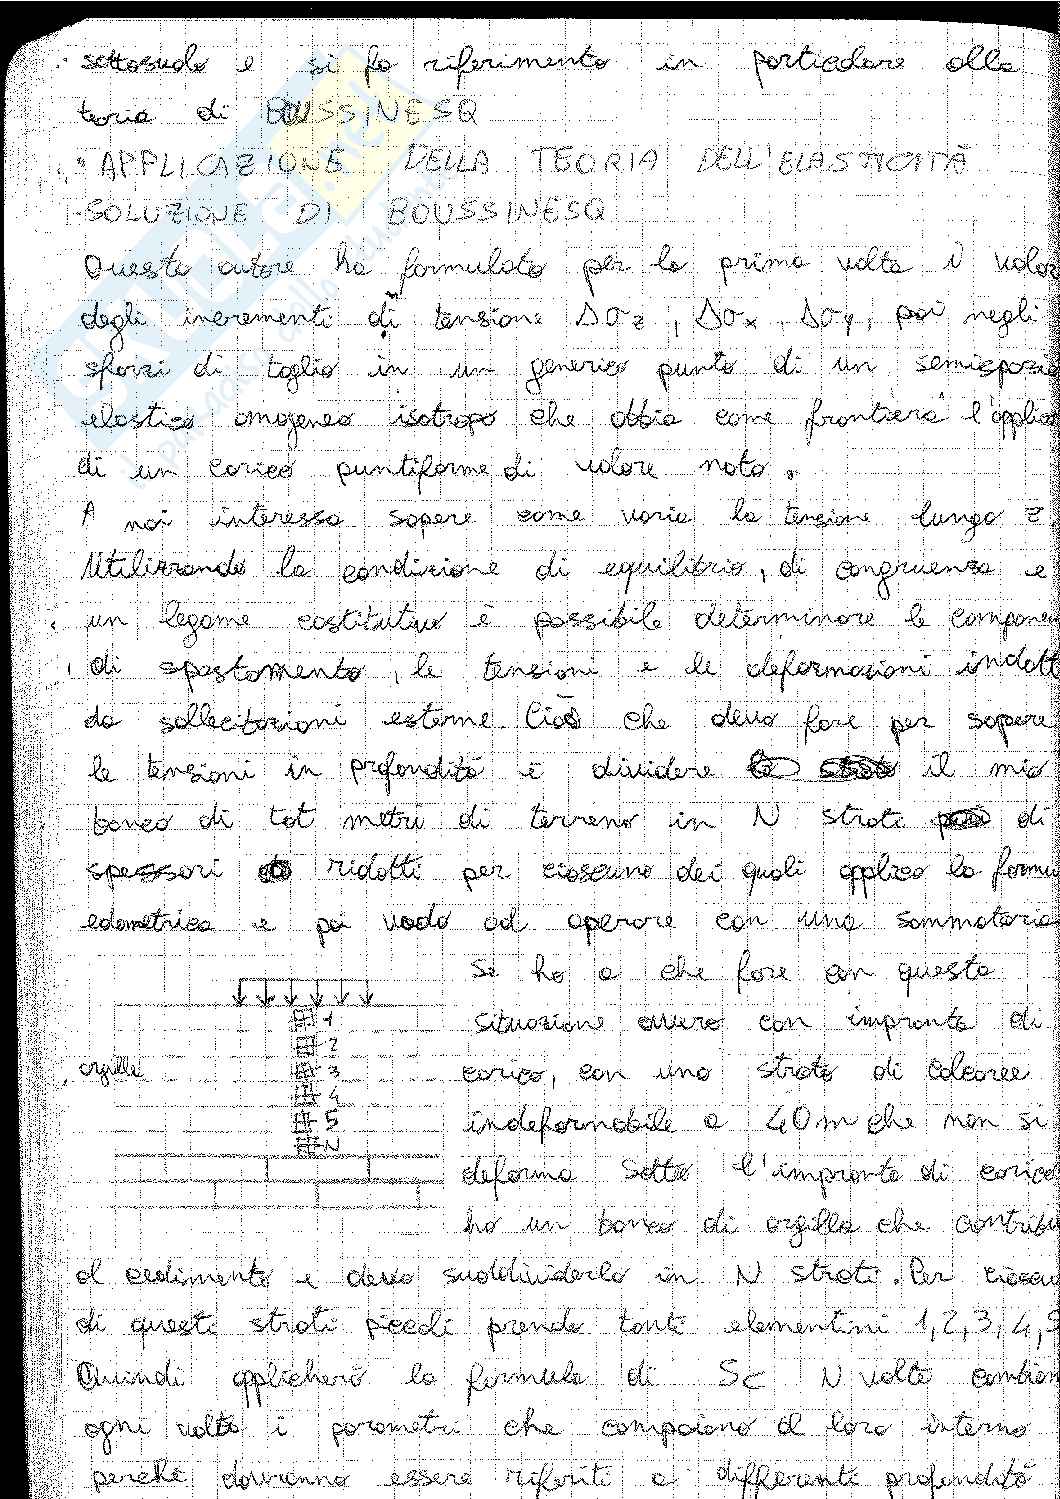 sottosuolo e si fa riferimento in particolare alla
teoria di BOUSSINESQ
• APPLICAZIONE DELLA TEORIA DELL'ELASTICITÀ
-SOLUZIONE DI BOUSSINESQ
Questo autore ha formulato per la prima volta i valor
degli incrementi di tensione Δσz, Δσx, Δσy, poi negli
sforzi di taglio in un generico punto di un semispazio
elastico omogeneo isotropo che abbia come frontiera l'applica
di un carico puntiforme di valore noto.
A noi interessa sapere come varia la tensione lungo z
Utilizzando la condizione di equilibrio, di congruenza e
un legame costitutivo è possibile determinare le componen
di spostamento, le tensioni e le deformazioni indott
da sollecitazioni esterne. Ciò che devo fare per sapere
le tensioni in profondità è dividere il mio
banco di tot metri di terreno in N strati di
spessori ridotti per ciascuno dei quali applico la formu
edometrica e poi vado ad operare con una sommatoria
Se ho a che fare con questa
situazione ovvero con impronta di
carico, con uno strato di calcare
indeformabile a 40m che non si
deforma Sotto l'impronta di carico
ho un banco di argilla che contribu
al cedimento e devo suddividerlo in N strati. Per ciascu
di questi strati piccoli prendo tanti elementini 1,2,3,4,5
Quindi applicherò la formula di Sc N volte cambian
ogni volta i parametri che compaiono al loro interno
perché dovranno essere riferiti a differenti profondità
argille
1
2
3
4
5
N